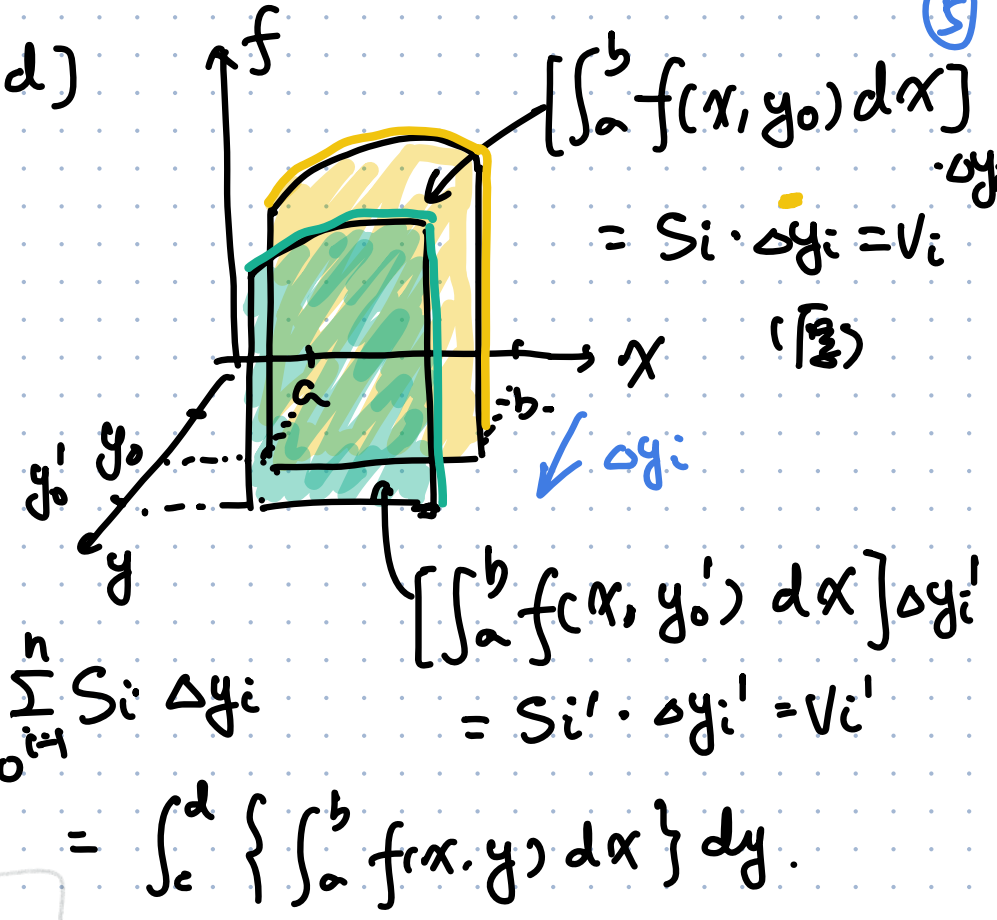 ⑤
d]
f
[∫ₐᵇ f(x, y₀) dx]
·Δyi
= Si · Δyi = Vi
(厚)
x
a
b
y₀
y₀'
y
Δyi
[∫ₐᵇ f(x, y₀') dx] Δyi'
= Si' · Δyi' = Vi'
∑ⁿᵢ₌₁ Si Δyi
= ∫꜀ᵈ { ∫ₐᵇ f(x, y) dx } dy.